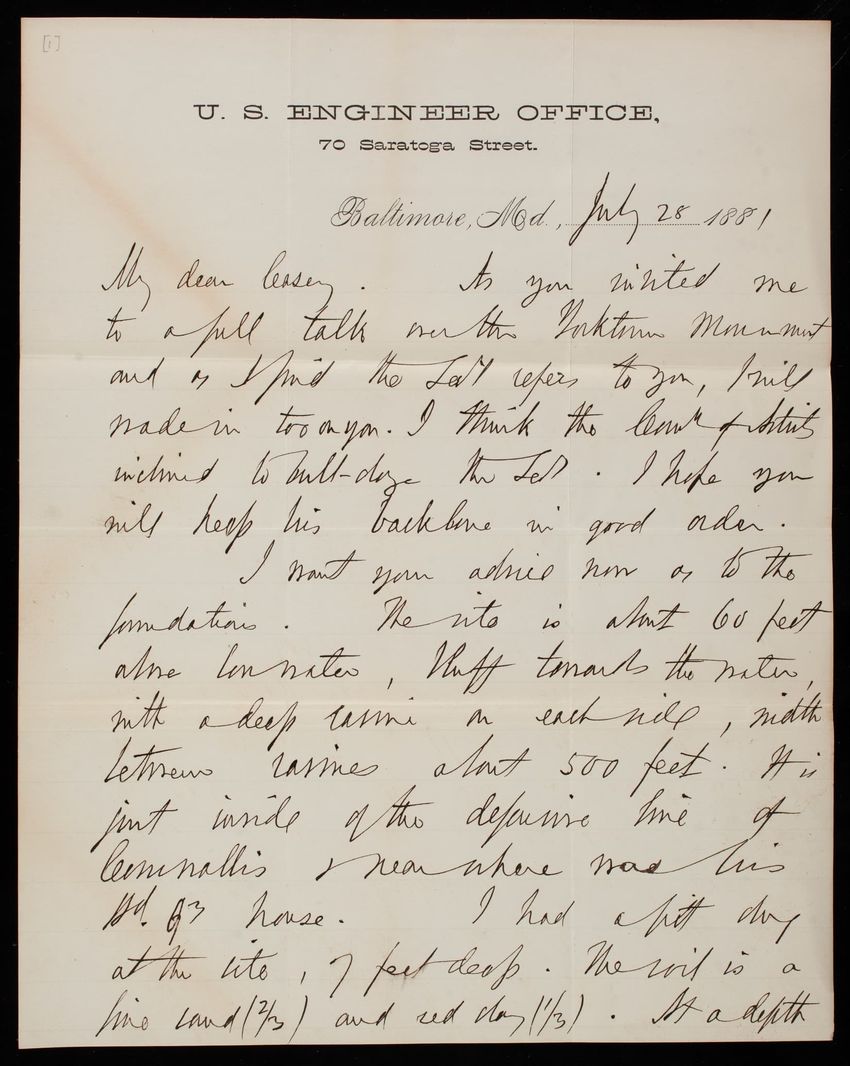 [1]
U. S. ENGINEER OFFICE,
70 Saratoga Street.
Baltimore, Md., July 28 1881
My dear Casey. As you invited me
to a full talk over the Yorktown Monument
and as I find the Sec'y refers to you, I will
wade in too on you. I think the Com'n of Artists
inclined to bull-doze the Sec'y. I hope you
will keep his backbone in good order.
I want your advice now as to the
foundations. The site is about 60 feet
above low water, bluff towards the water,
with a deep ravine on each side, width
between ravines about 500 feet. It is
just inside of the defensive line of
Cornwallis & near where was his
Hd. Qrs house. I had a pit dug
at the site, 7 feet deep. The soil is a
fine sand (2/3) and red clay (1/3). At a depth